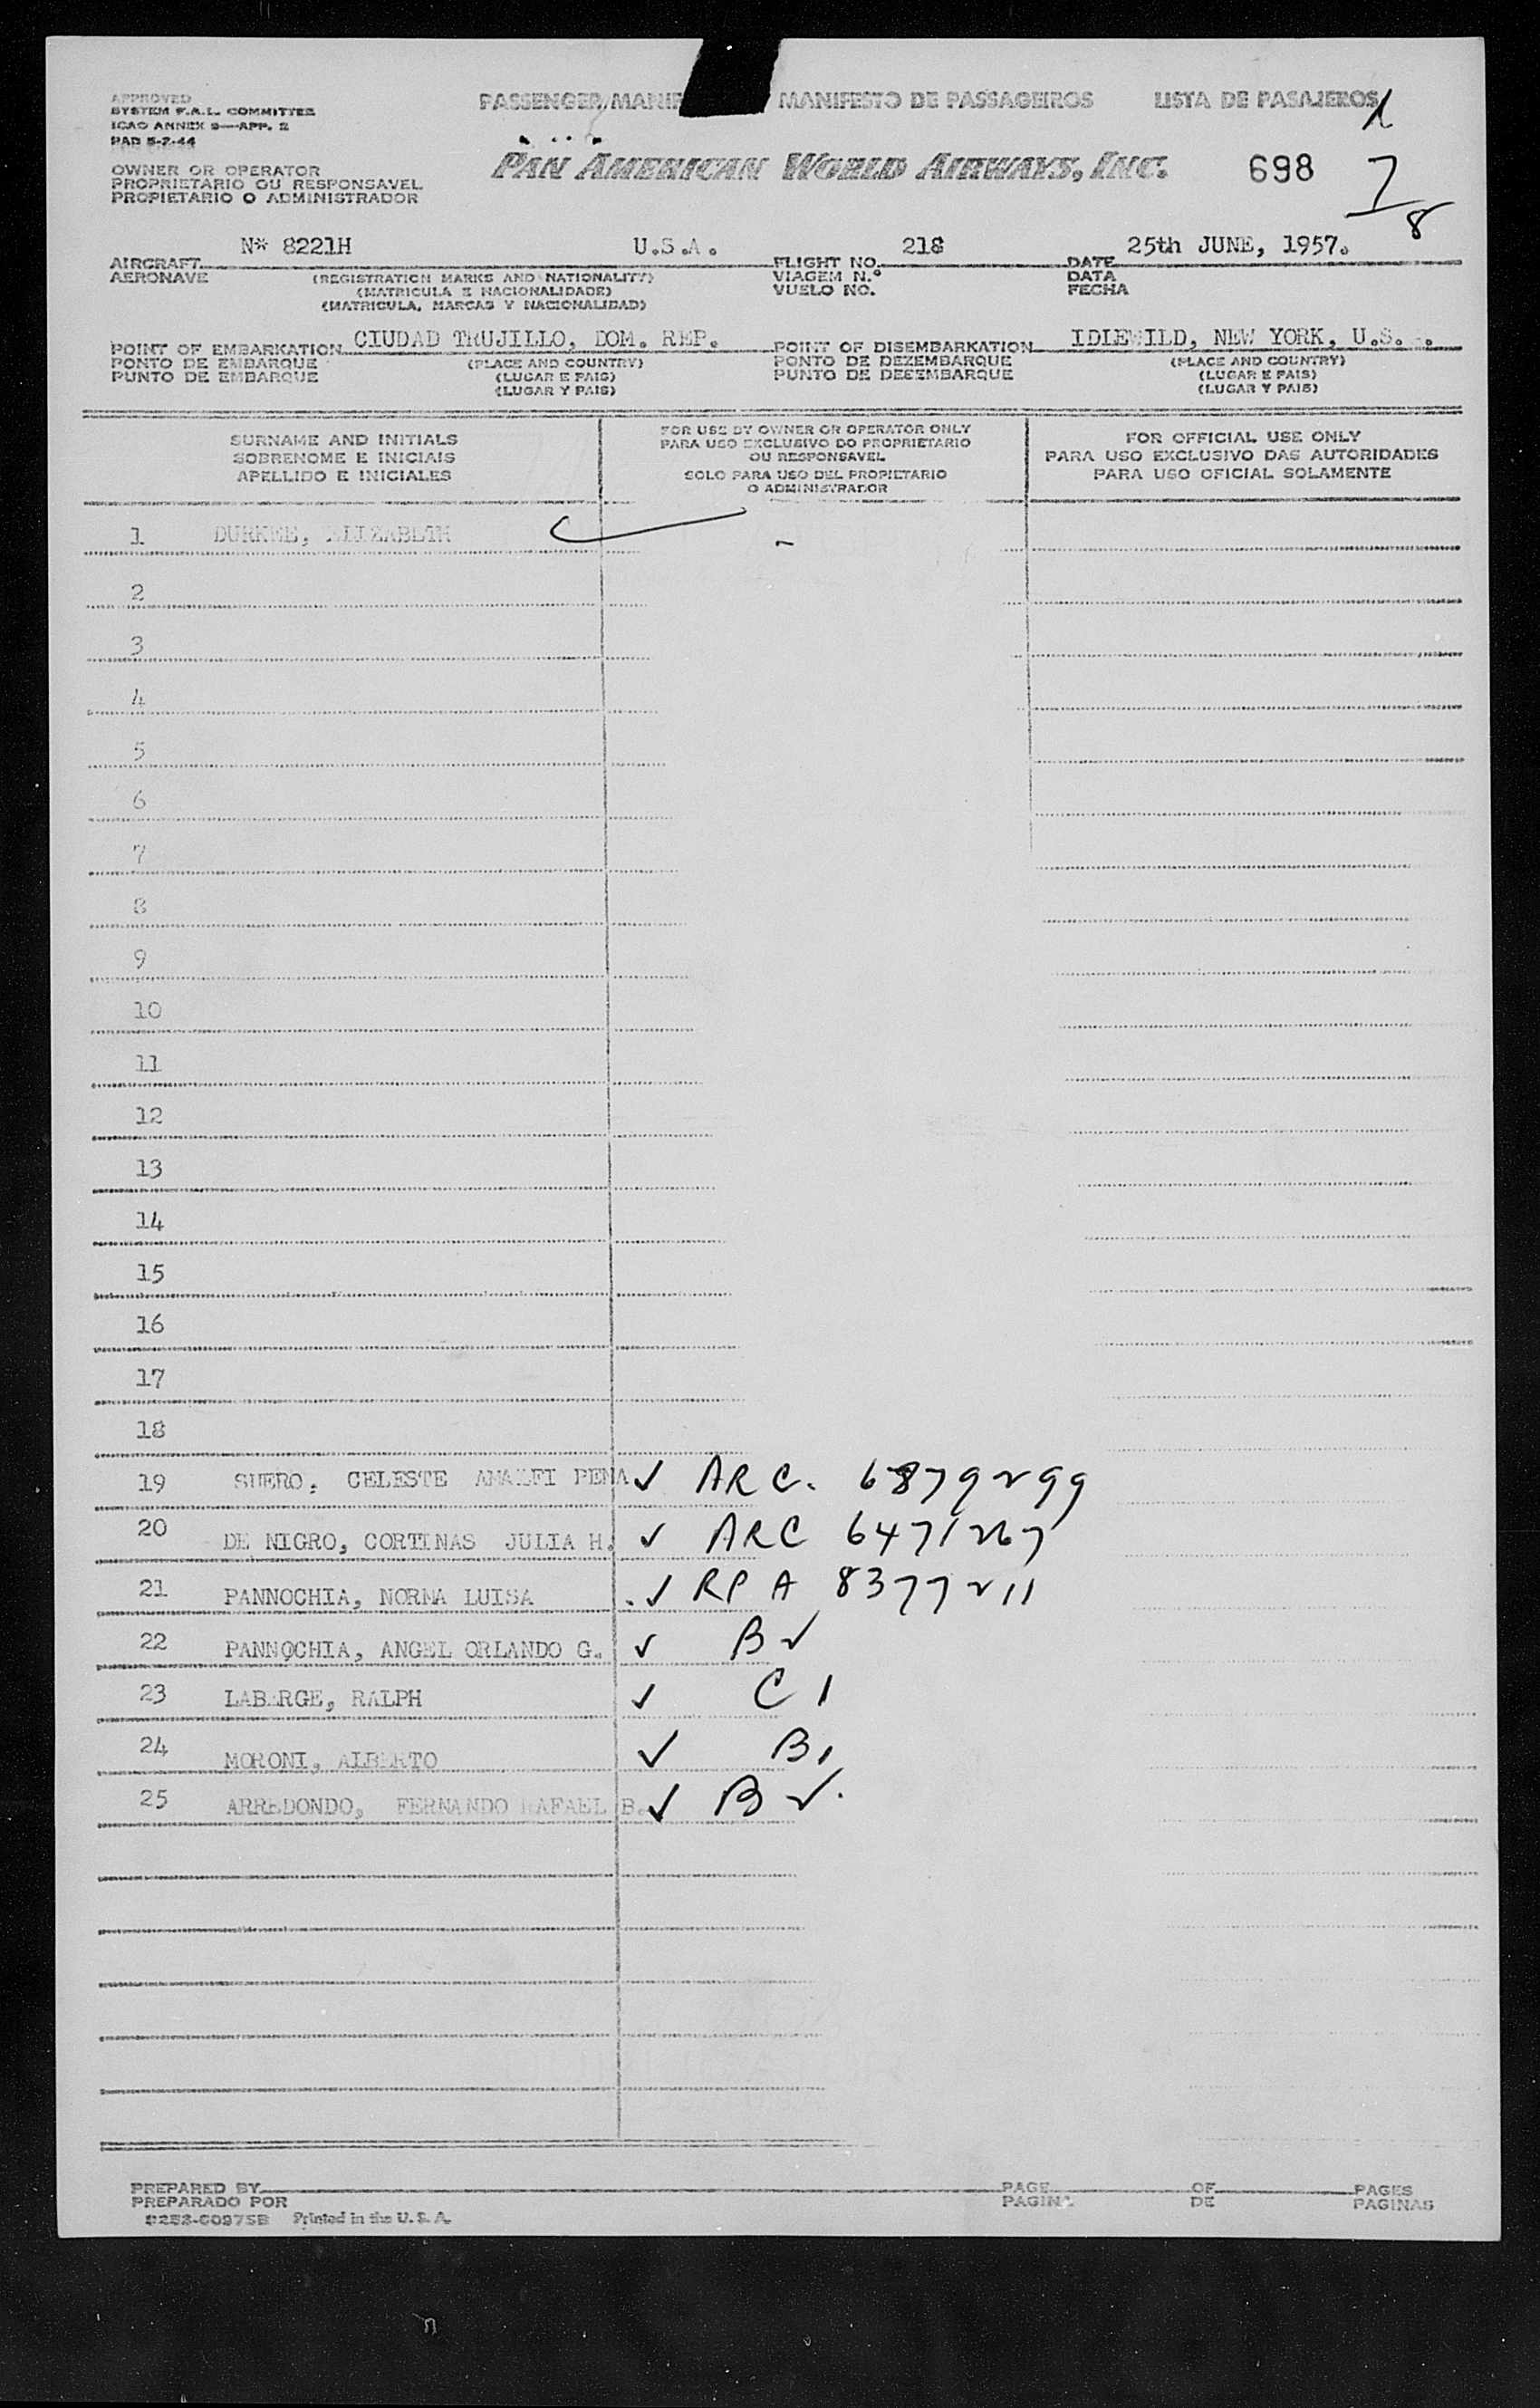 APPROVED
SYSTEM F.A.L. COMMITTEE
ICAO ANNEX 9—APP. 2
PAD 5-7-44
PASSENGER/MANIF MANIFESTO DE PASSAGEIROS LISTA DE PASAJEROS
OWNER OR OPERATOR
PROPRIETARIO OU RESPONSAVEL
PROPIETARIO O ADMINISTRADOR
PAN AMERICAN WORLD AIRWAYS, INC. 698
7
8
AIRCRAFT N* 8221H U.S.A. FLIGHT NO. 218 DATE 25th JUNE, 1957.
AERONAVE (REGISTRATION MARKS AND NATIONALITY) VIAGEM N.º DATA
(MATRICULA E NACIONALIDADE) VUELO NO. FECHA
(MATRICULA, MARCAS Y NACIONALIDAD)
POINT OF EMBARKATION CIUDAD TRUJILLO, DOM. REP. POINT OF DISEMBARKATION IDLEWILD, NEW YORK, U.S. .
PONTO DE EMBARQUE (PLACE AND COUNTRY) PONTO DE DEZEMBARQUE (PLACE AND COUNTRY)
PUNTO DE EMBARQUE (LUGAR E PAIS) PUNTO DE DESEMBARQUE (LUGAR E PAIS)
(LUGAR Y PAIS) (LUGAR Y PAIS)
SURNAME AND INITIALS
SOBRENOME E INICIAIS
APELLIDO E INICIALES
FOR USE BY OWNER OR OPERATOR ONLY
PARA USO EXCLUSIVO DO PROPRIETARIO
OU RESPONSAVEL
SOLO PARA USO DEL PROPIETARIO
O ADMINISTRADOR
FOR OFFICIAL USE ONLY
PARA USO EXCLUSIVO DAS AUTORIDADES
PARA USO OFICIAL SOLAMENTE
1 DURKEE, ELIZABETH
2
3
4
5
6
7
8
9
10
11
12
13
14
15
16
17
18
19 SUERO, CELESTE AMALFI PENA ✓ ARC. 6879299
20 DE NIGRO, CORTINAS JULIA H. ✓ ARC 6471267
21 PANNOCHIA, NORMA LUISA ✓ RPA 8377211
22 PANNOCHIA, ANGEL ORLANDO G. ✓ B2
23 LABARGE, RALPH ✓ C1
24 MORONI, ALBERTO ✓ B1
25 ARREDONDO, FERNANDO RAFAEL B. ✓ B2.
PREPARED BY PAGE OF PAGES
PREPARADO POR PAGINA DE PAGINAS
Printed in the U. S. A.